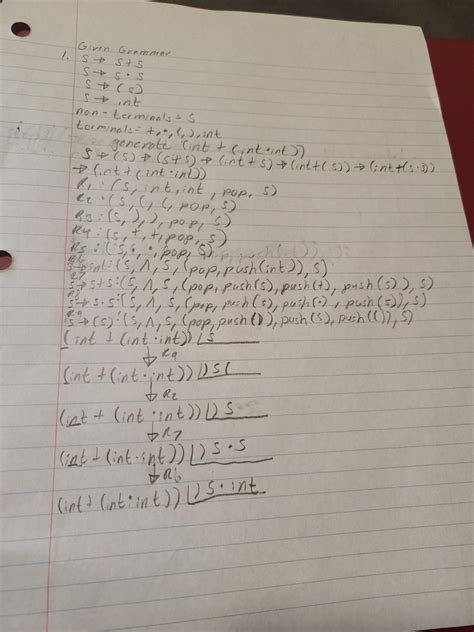 Given Grammar
1. S → S + S
S → S • S
S → (S)
S → int
non-terminals = S
terminals = +, •, (, ), int
generate (int + (int • int))
S → (S) → (S+S) → (int + S) → (int + (S)) → (int + (S • S))
→ (int + (int • int))
R1: (S, int, int, pop, S)
R2: (S, (, (, pop, S)
R3: (S, ), ), pop, S)
R4: (S, +, +, pop, S)
R5: (S, •, •, pop, S)
R6
S → int: (S, Λ, S, (pop, push(int)), S)
R7
S → S+S: (S, Λ, S, (pop, push(S), push(+), push(S)), S)
R8
S → S•S: (S, Λ, S, (pop, push(S), push(•), push(S)), S)
R9
S → (S): (S, Λ, S, (pop, push()), push(S), push(()), S)
(int + (int • int)) | S
↓ R9
(int + (int • int)) | ) S (
↓ R2
(int + (int • int)) | ) S
↓ R7
(int + (int • int)) | ) S • S
↓ R6
(int + (int • int)) | ) S • int